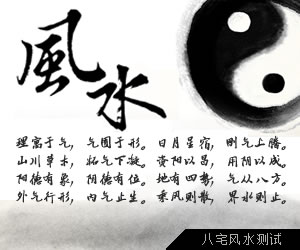 風水
理寓于气，气囿于形。日月星宿，刚气上腾。
山川草木，柘气下凝。资阳以昌，用阴以成。
阳德有象，阴德有位。地有四势，气从八方。
外气行形，内气止生。乘风则散，界水则止。
八宅风水测试